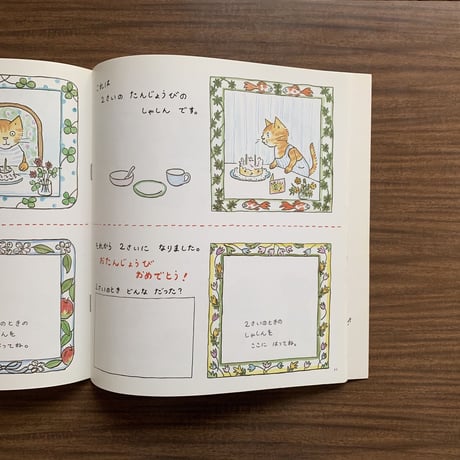 これは
2さいの たんじょうびの
しゃしん です。
それから 2さいに なりました。
おたんじょうび
おめでとう!
2さいのとき どんな だった?
2さいのときの
しゃしんを
ここに はってね。
さいのときの
しゃしんを
はってね。